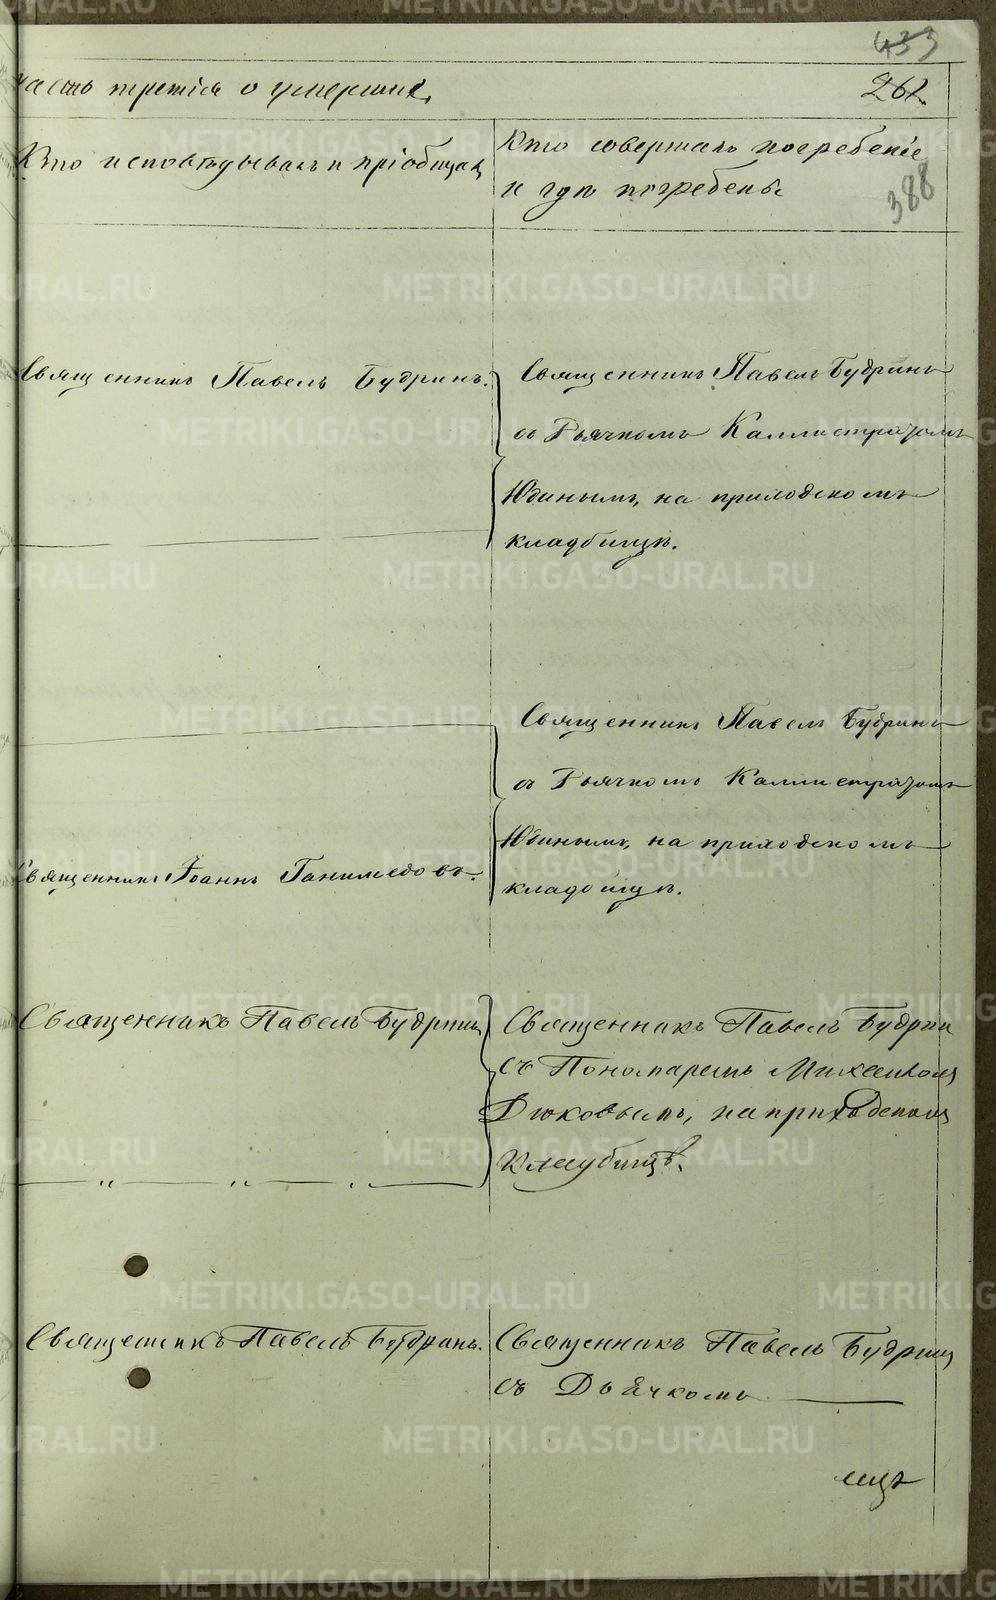 433
часть третія о умершихъ
261.
Кто исповѣдывалъ и пріобщалъ
Кто совершалъ погребеніе
и гдѣ погребены.
388
Священникъ Павелъ Будринъ.
Священникъ Павелъ Будринъ
съ Дьячкомъ Каллистратомъ
Юдинымъ, на приходскомъ
кладбищѣ.
Священникъ Павелъ Будринъ
съ Дьячкомъ Каллистратомъ
Юдинымъ, на приходскомъ
кладбищѣ.
Священникъ Іоаннъ Ганимедовъ.
Священникъ Павелъ Будринъ
Священникъ Павелъ Будрин
съ Пономаремъ Михаиломъ
Дюковымъ, на приходскомъ
Кладбищѣ.
Священникъ Павелъ Будринъ.
Священникъ Павелъ Будринъ
съ Дьячкомъ
METRIKI.GASO-URAL.RU